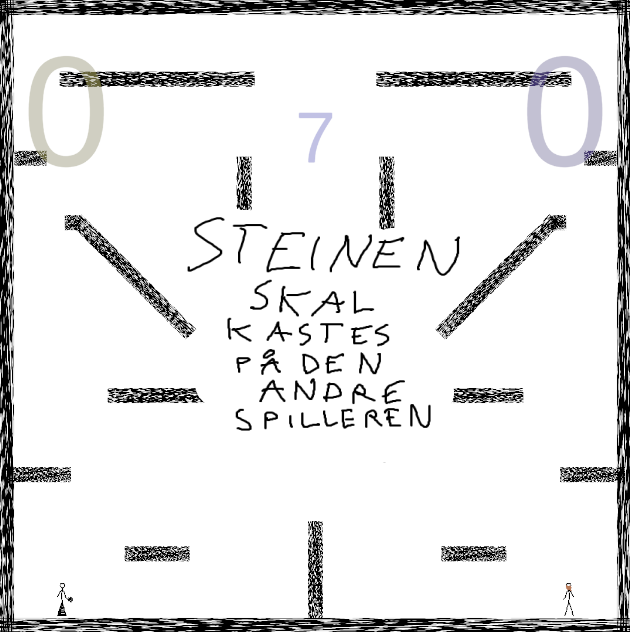 0 0
7
STEINEN
SKAL
KASTES
PÅ DEN
ANDRE
SPILLEREN